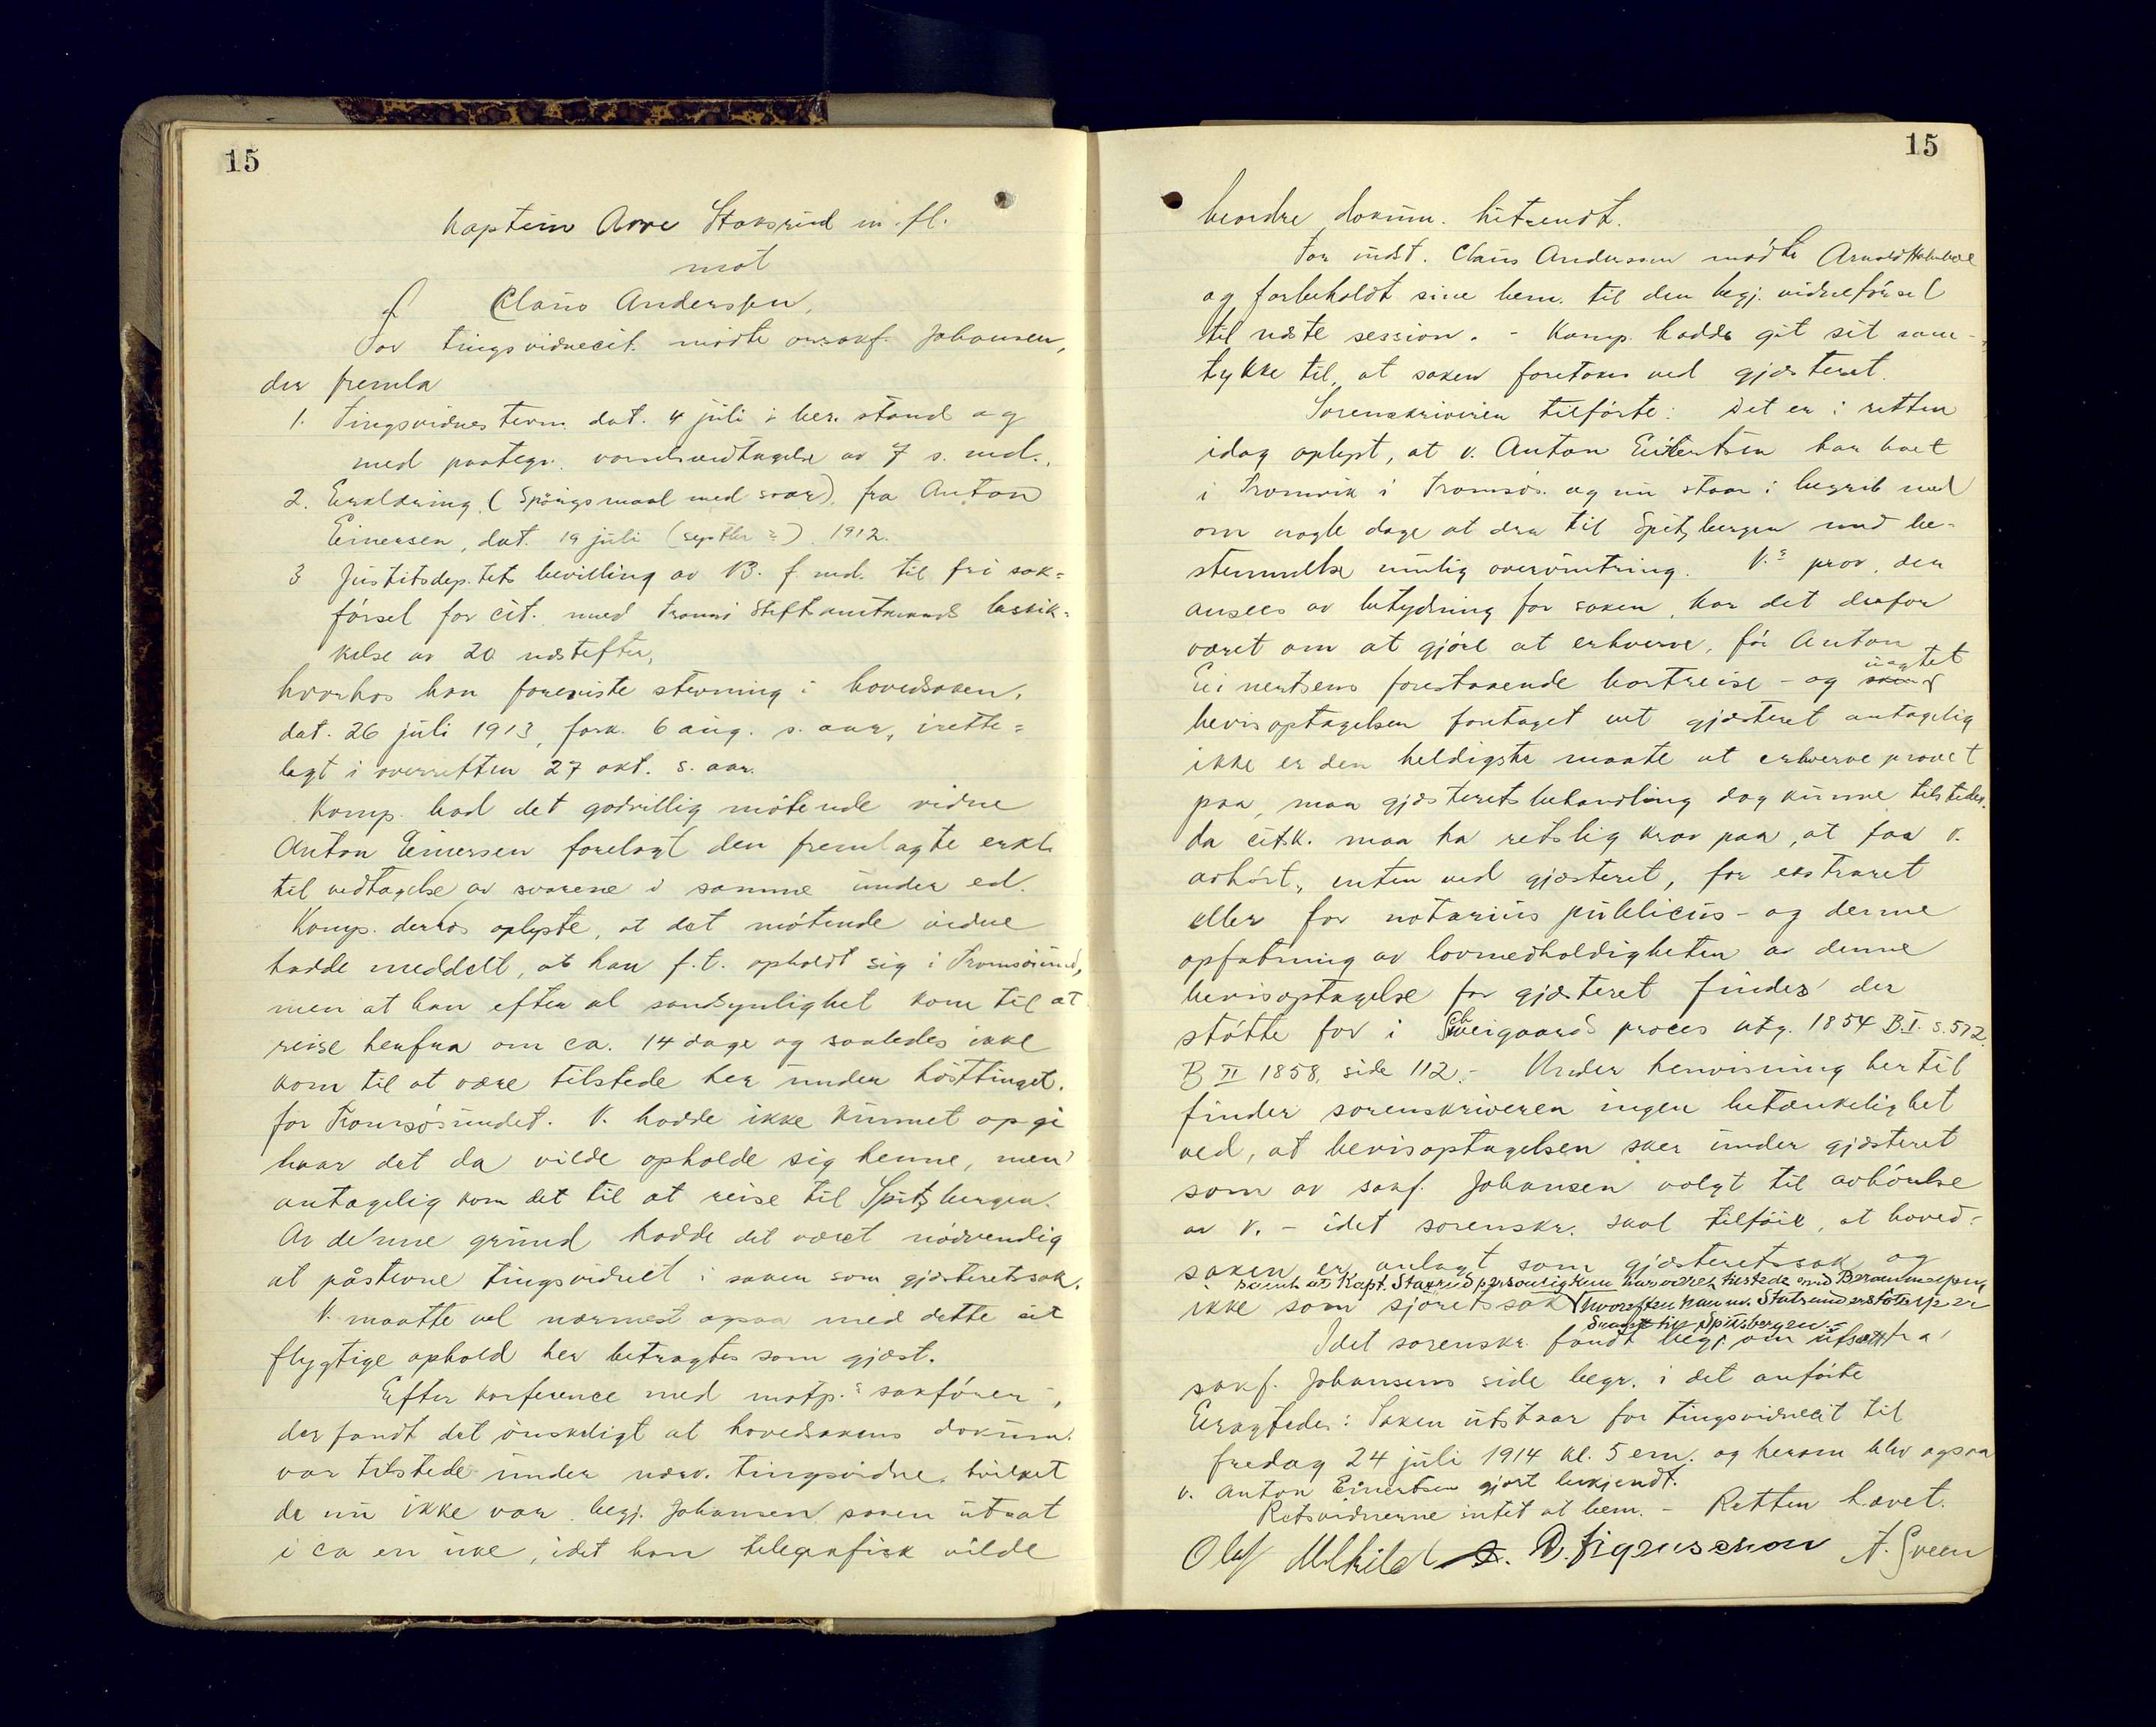 15
Kaptein Arve Staksrud m. fl.
mot
Claus Andersen.
For tingsvidnecit. mødte o.r.sakf. Johansen,
der fremla
1. Tingsvidnestevn. dat. 4 juli i ber. stand og
med paategn. varselsvedtagelse av 7 s. md.,
2. Erklæring (Spörgsmaal med svar) fra Anton
Einersen, dat. 19 juli (septbr ?) 1912.
3 Justitsdep.tets bevilling av 13. f. md. til fri sak=
førsel for cit. med Tromsø Stiftamtmands beskik=
kelse av 20 næstefter,
hvorhos han foreviste stevning i hovedsaken,
dat. 26 juli 1913, fork. 6 aug. s. aar, irette=
lagt i overretten 27 okt. s. aar.
Komp. bad det godvillig mötende vidne
Anton Einersen forelagt den fremlagte erkl.
til vedtagelse av svarene i samme under ed.
Komp. derhos oplyste, at det mötende vidne
hadde meddelt, at han f.t. opholdt sig i Tromsösund,
men at han efter al sandsynlighet kom til at
reise herfra om ca. 14 dage og saaledes ikke
kom til at være tilstede her under hösttinget.
for Tromsösundet. V. hadde ikke kunnet opgi
hvor det da vilde opholde sig henne, men
antagelig kom det til at reise til Spitzbergen.
Av denne grund hadde det været nödvendig
at påstevne tingsvidnet i saken som gjæsteretssak.
V. maatte vel nærmest ogsaa med dette sit
flygtige ophold her betragtes som gjæst.
Efter konference med motp.s sakförer,
der fandt det önskeligt at hovedsakens dokum.
var tilstede under nærv. tingsvidne, hvilket
de nu ikke var, begj. Johansen saken utsat
i ca en uke, idet han telegrafisk vilde
15
beordre dokum. hitsendt.
For indst. Claus Andersen mödte Arnold Holmboe
og forbeholdt sine bem. til den begj. vidneförsel
til næste session. - Komp. hadde git sit sam-
tykke til, at saken foretoges ved gjæsteret.
Sorenskriveren tilförte: Det er i retten
idag oplyst, at v. Anton Einertsen har boet
i Tromvik i Tromsös. og nu staar i begreb med
om nogle dage at dra til Spitzbergen med be-
stemmelse mulig overvintring. V.s prov, der
ansees av betydning for saken, har det derfor
været om at gjöre at erhverve, för Anton
Einertsens forestaaende bortreise - og uagtet
bevisoptagelsen foretaget ved gjæsteret antagelig
ikke er den heldigste maate at erhverve provet
paa, maa gjæsteretsbehandling dog kunne tilstedes.
da citsk. maa ha retslig krav paa, at faa v.
avhört, enten ved gjæsteret, for ekstraret
eller for notarius publicus - og denne
opfatning av lovmedholdigheten av denne
bevisoptagelse for gjæsteret findes der
stötte for i Schweigaards proces utg. 1854 B.I. s. 512.
B II 1858, side 112. - Under henvisning hertil
finder sorenskriveren ingen betænkelighet
ved, at bevisoptagelsen sker under gjæsteret
som av sakf. Johansen valgt til avhörelse
av v. - idet sorenskr. skal tilföie, at hoved-
saken er anlagt som gjæsteretssak og
ikke som sjöretssak
samt at Kapt. Staxrud personlig kun har været tilstede ved Berammelsen,
hvorefter han m. Statsunderstöttelse er
draget til Spitsbergen. -
Idet sorenskr. fandt begj. om utsætt. fra
sakf. Johansens side begr. i det anförte
Eragtedes: Saken utstaar for tingsvidnecit til
fredag 24 juli 1914 kl. 5 em. og herom blev ogsaa
v. Anton Einertsen gjort bekjendt.
Retsvidnerne intet at bem. - Retten hævet.
Olaf A. Sveen